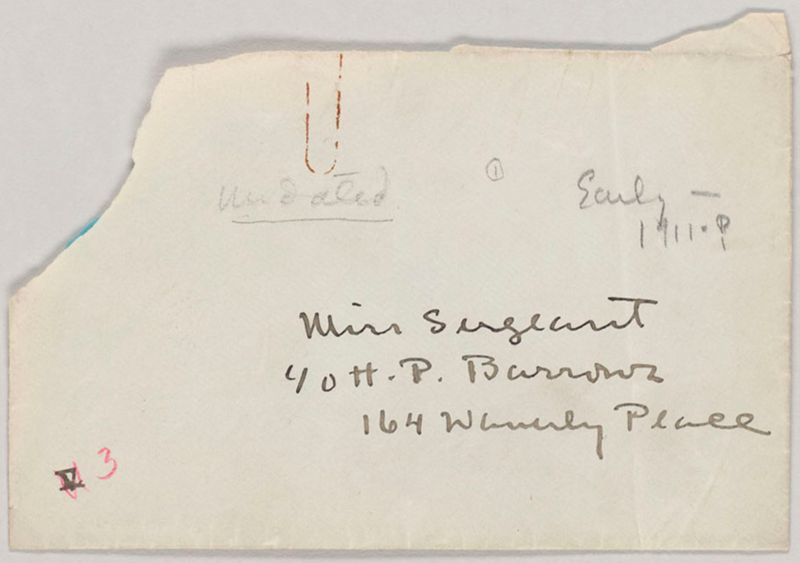 undated
①
Early —
1911.?
Miss Sergeant
c/o H. P. Barrows
164 Waverly Place
V 3